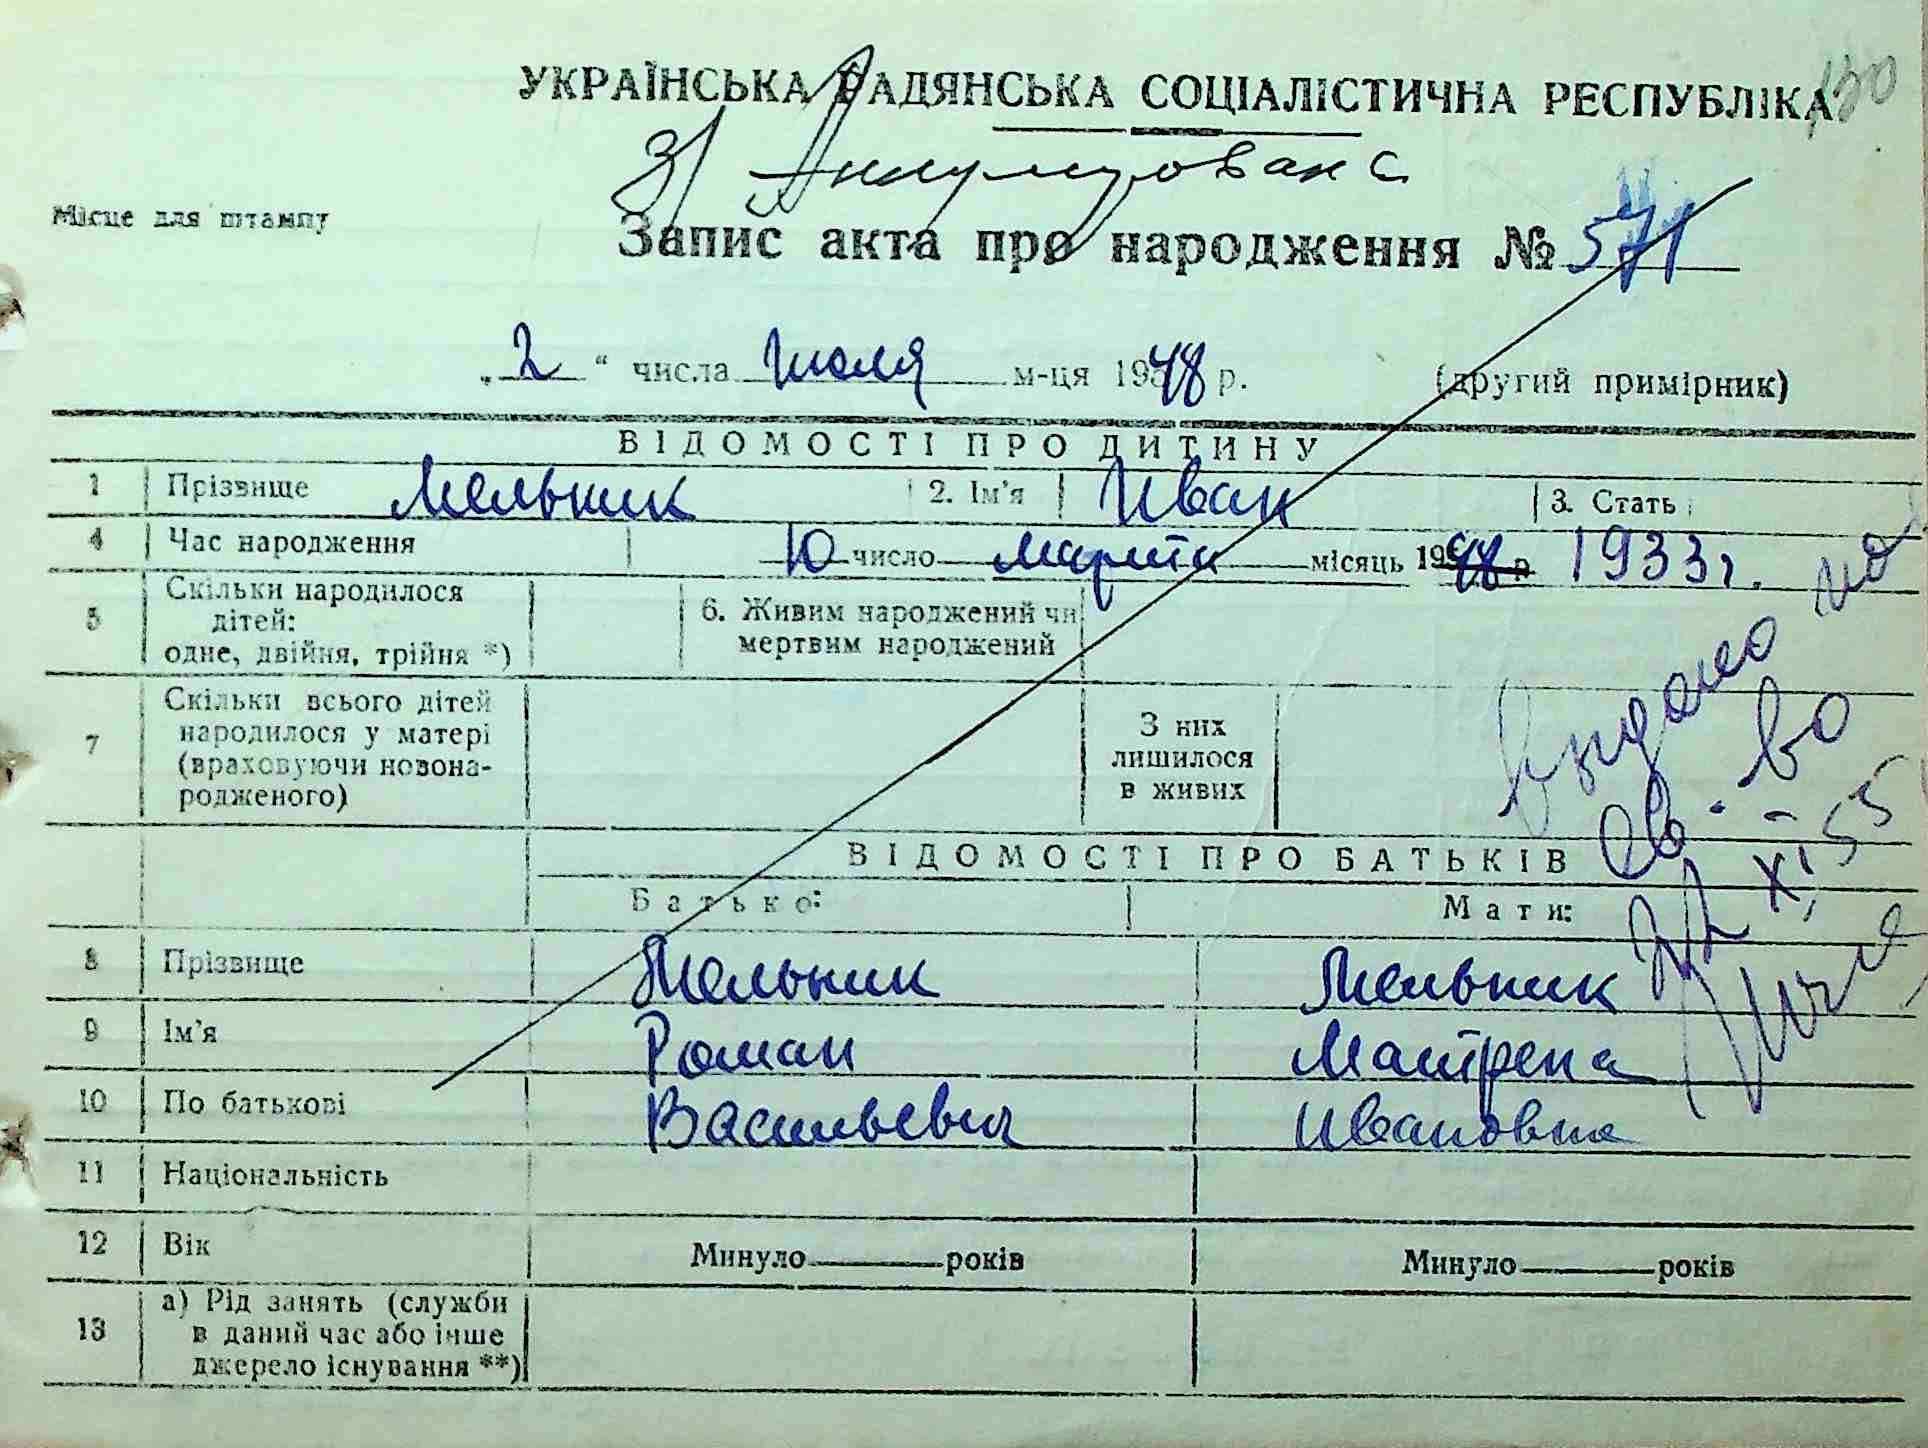 130
УКРАЇНСЬКА РАДЯНСЬКА СОЦІАЛІСТИЧНА РЕСПУБЛІКА
Місце для штампу
Запис акта про народження № 571
„2“ числа июля м-ця 1948 р. (другий примірник)
ВІДОМОСТІ ПРО ДИТИНУ
1 Прізвище Мельник 2. Ім'я Иван 3. Стать
4 Час народження 10 число марта місяць 1948 р 1933 г.
5 Скільки народилося дітей: одне, двійня, трійня *) 6. Живим народжений чи мертвим народжений
7 Скільки всього дітей народилося у матері (враховуючи новонародженого) З них лишилося в живих
выдано
св-во
22 XI, 55
ВІДОМОСТІ ПРО БАТЬКІВ
Батько: Мати:
8 Прізвище Мельник Мельник
9 Ім'я Роман Матрена
10 По батькові Васильевич Ивановна
11 Національність
12 Вік Минуло років Минуло років
13 а) Рід занять (служби в даний час або інше джерело існування **)